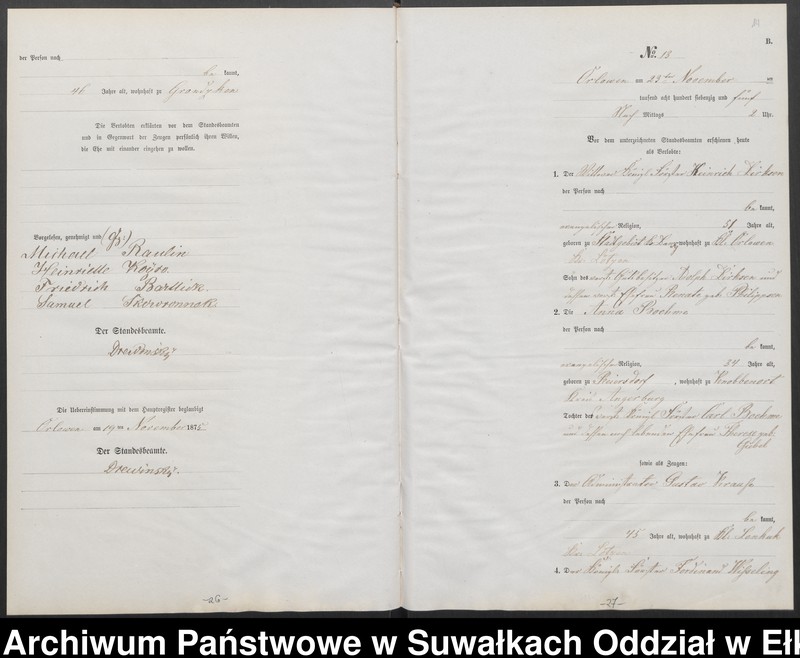 der Person nach
be kannt,
46 Jahre alt, wohnhaft zu Grondzken
Die Verlobten erklärten vor dem Standesbeamten
und in Gegenwart der Zeugen persönlich ihren Willen,
die Ehe mit einander eingehen zu wollen.
Vorgelesen, genehmigt und (gez:)
Michael Raulin
Heinriette Koyro
Friedrich Bartlick.
Samuel Skowronnek
Der Standesbeamte.
Drewinsky.
Die Uebereinstimmung mit dem Hauptregister beglaubigt
Orlowen am 19ten November 1875
Der Standesbeamte.
Drewinsky.
-26-
B.
No. 13
Orlowen am 23ten November ein
tausend acht hundert siebenzig und fünf
Nach Mittags 2 Uhr.
Vor dem unterzeichneten Standesbeamten erschienen heute
als Verlobte:
1. Der Königl. Förster Heinrich
der Person nach
be kannt,
evangelischer Religion, 51 Jahre alt,
geboren zu wohnhaft zu Kl. Orlowen
Kr. Lötzen
Sohn des Adolph und
dessen Ehefrau Renate geb. Philipsen
2. Die Anna Boehme
der Person nach
be kannt,
evangelischer Religion, 34 Jahre alt,
geboren zu Reimsdorf, wohnhaft zu Knobbenort
Kreis Angerburg
Tochter des Königl. Förster Carl Boehme
und dessen noch lebenden Ehefrau geb.
sowie als Zeugen:
3. Der Administrator Gustav Krause
der Person nach
be kannt,
45 Jahre alt, wohnhaft zu Kl. Lenkuk
Kr. Lötzen
4. Der Königl. Förster Ferdinand Wesseling
-27-
Archiwum Państwowe w Suwałkach Oddział w Ełk